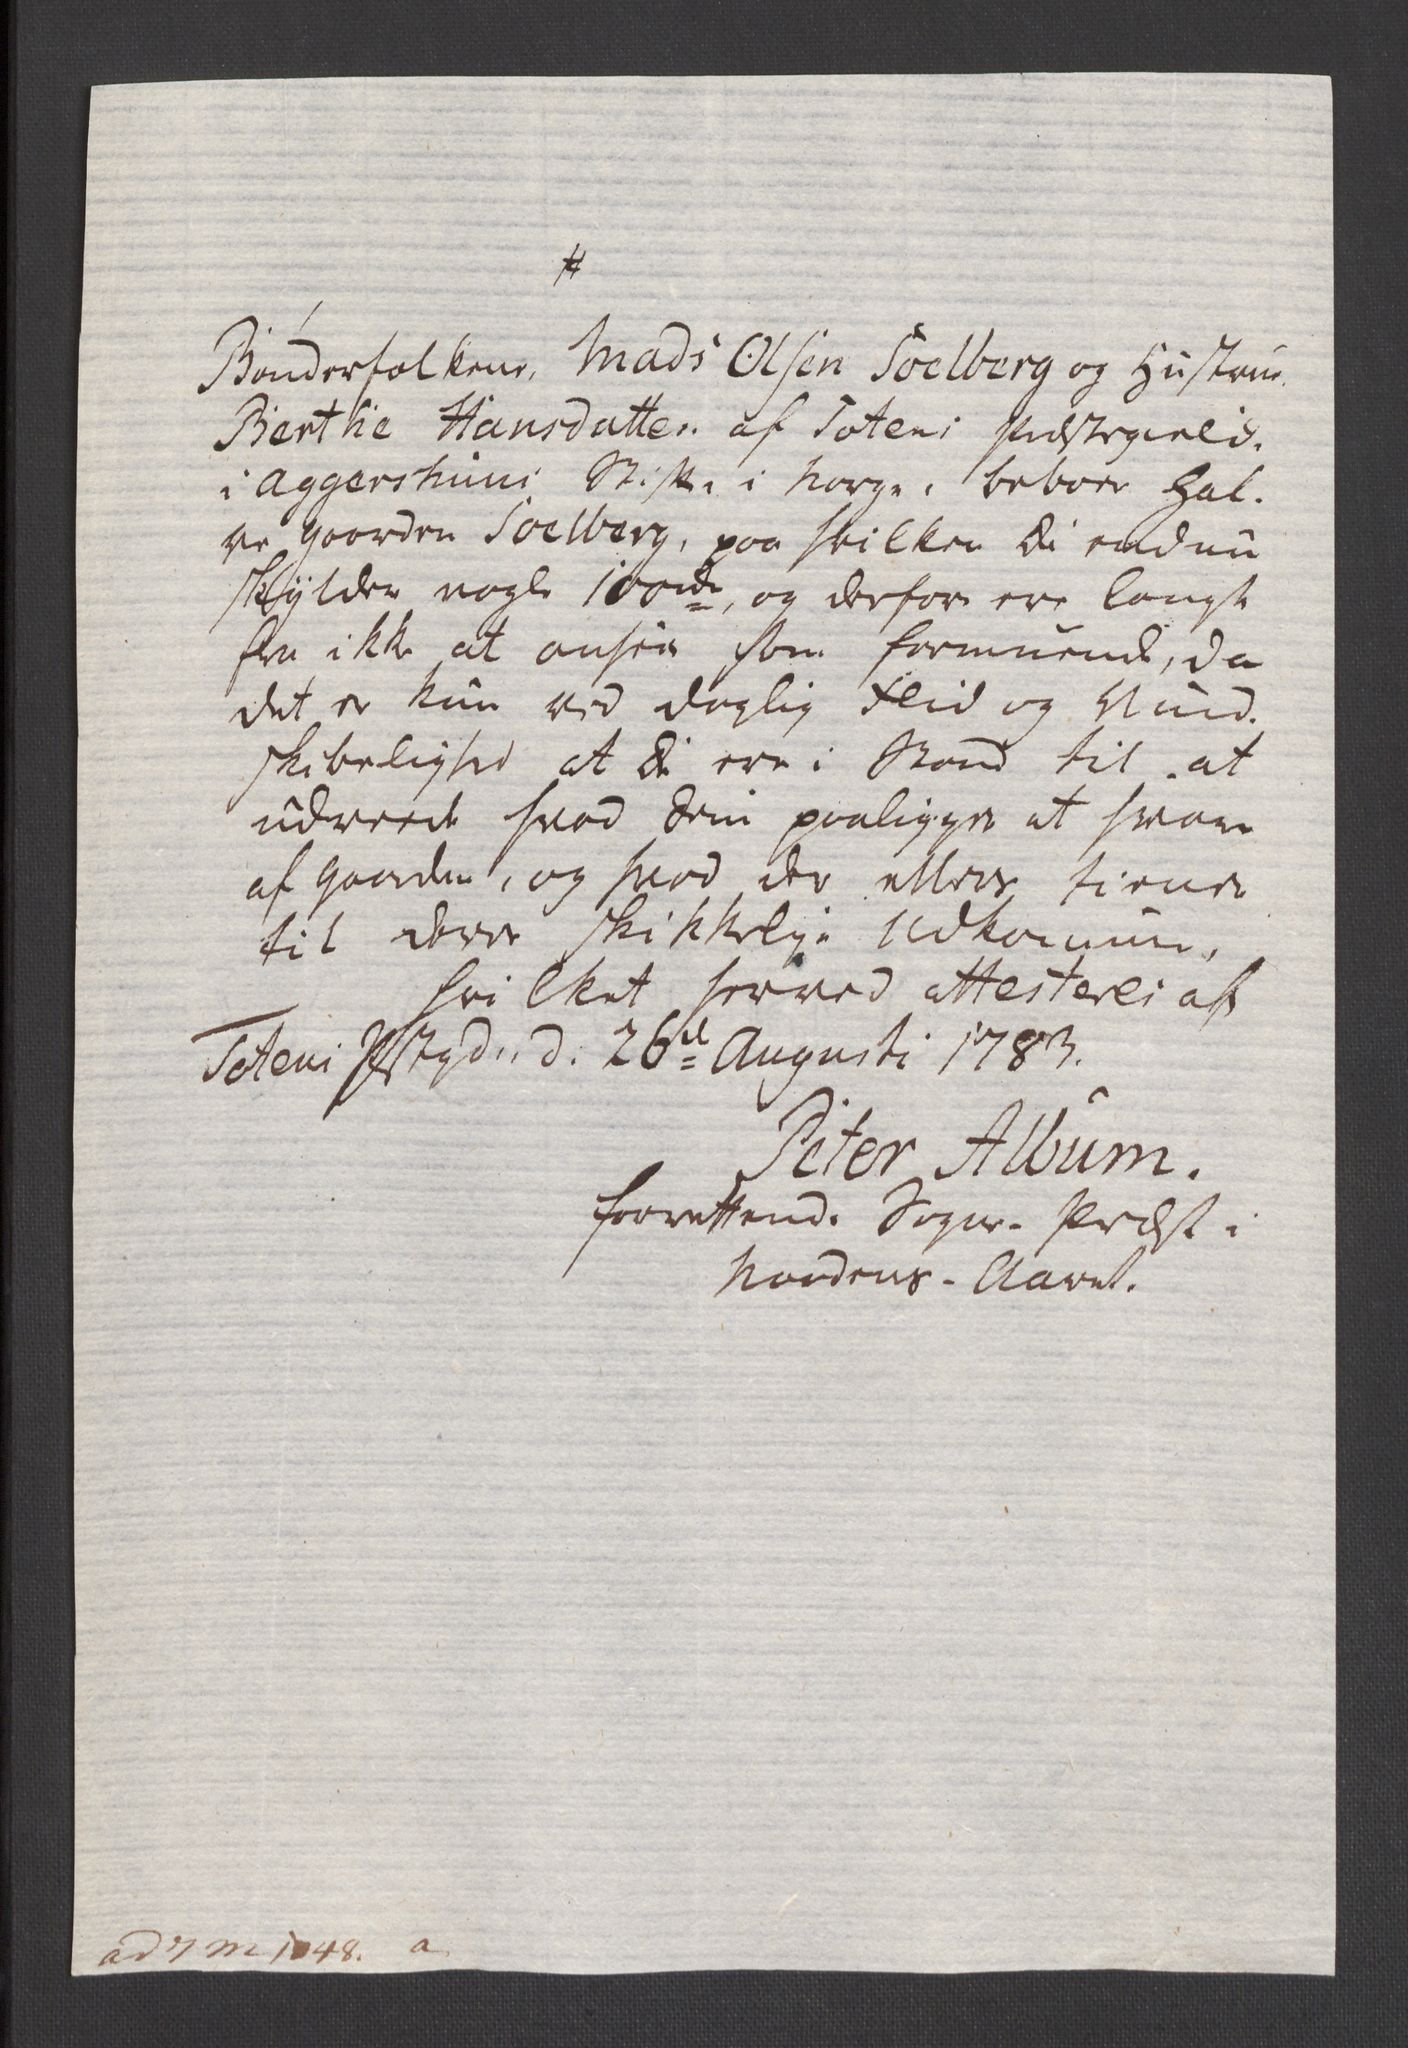 #
Bønderfolkene, Mads Olsen Soelberg og Hustrue
Berthe Hansdatter af Totens Præstegield.
i Aggershuus Stift i Norge, beboer Hal-
ve Gaarden Soelberg, paa hvilken de endnu
skylder nogle 100rd, og derfore ere langt
fra ikke at ansees som formuende, da
det er kun ved daglig Fliid og Vind-
skibelighed at de ere i Stand til at
udreede hvad dem paaligger at svare
af Gaarden, og hvad der ellers tiener
til deres skikkelige Udkomme,
hvilket herved attesteres af
Totens Pstgd. d. 26de Augusti 1783.
Peter Album.
forrettende Sogne-Præst i
Naadens-Aaret.
ad 7 M 1048. a